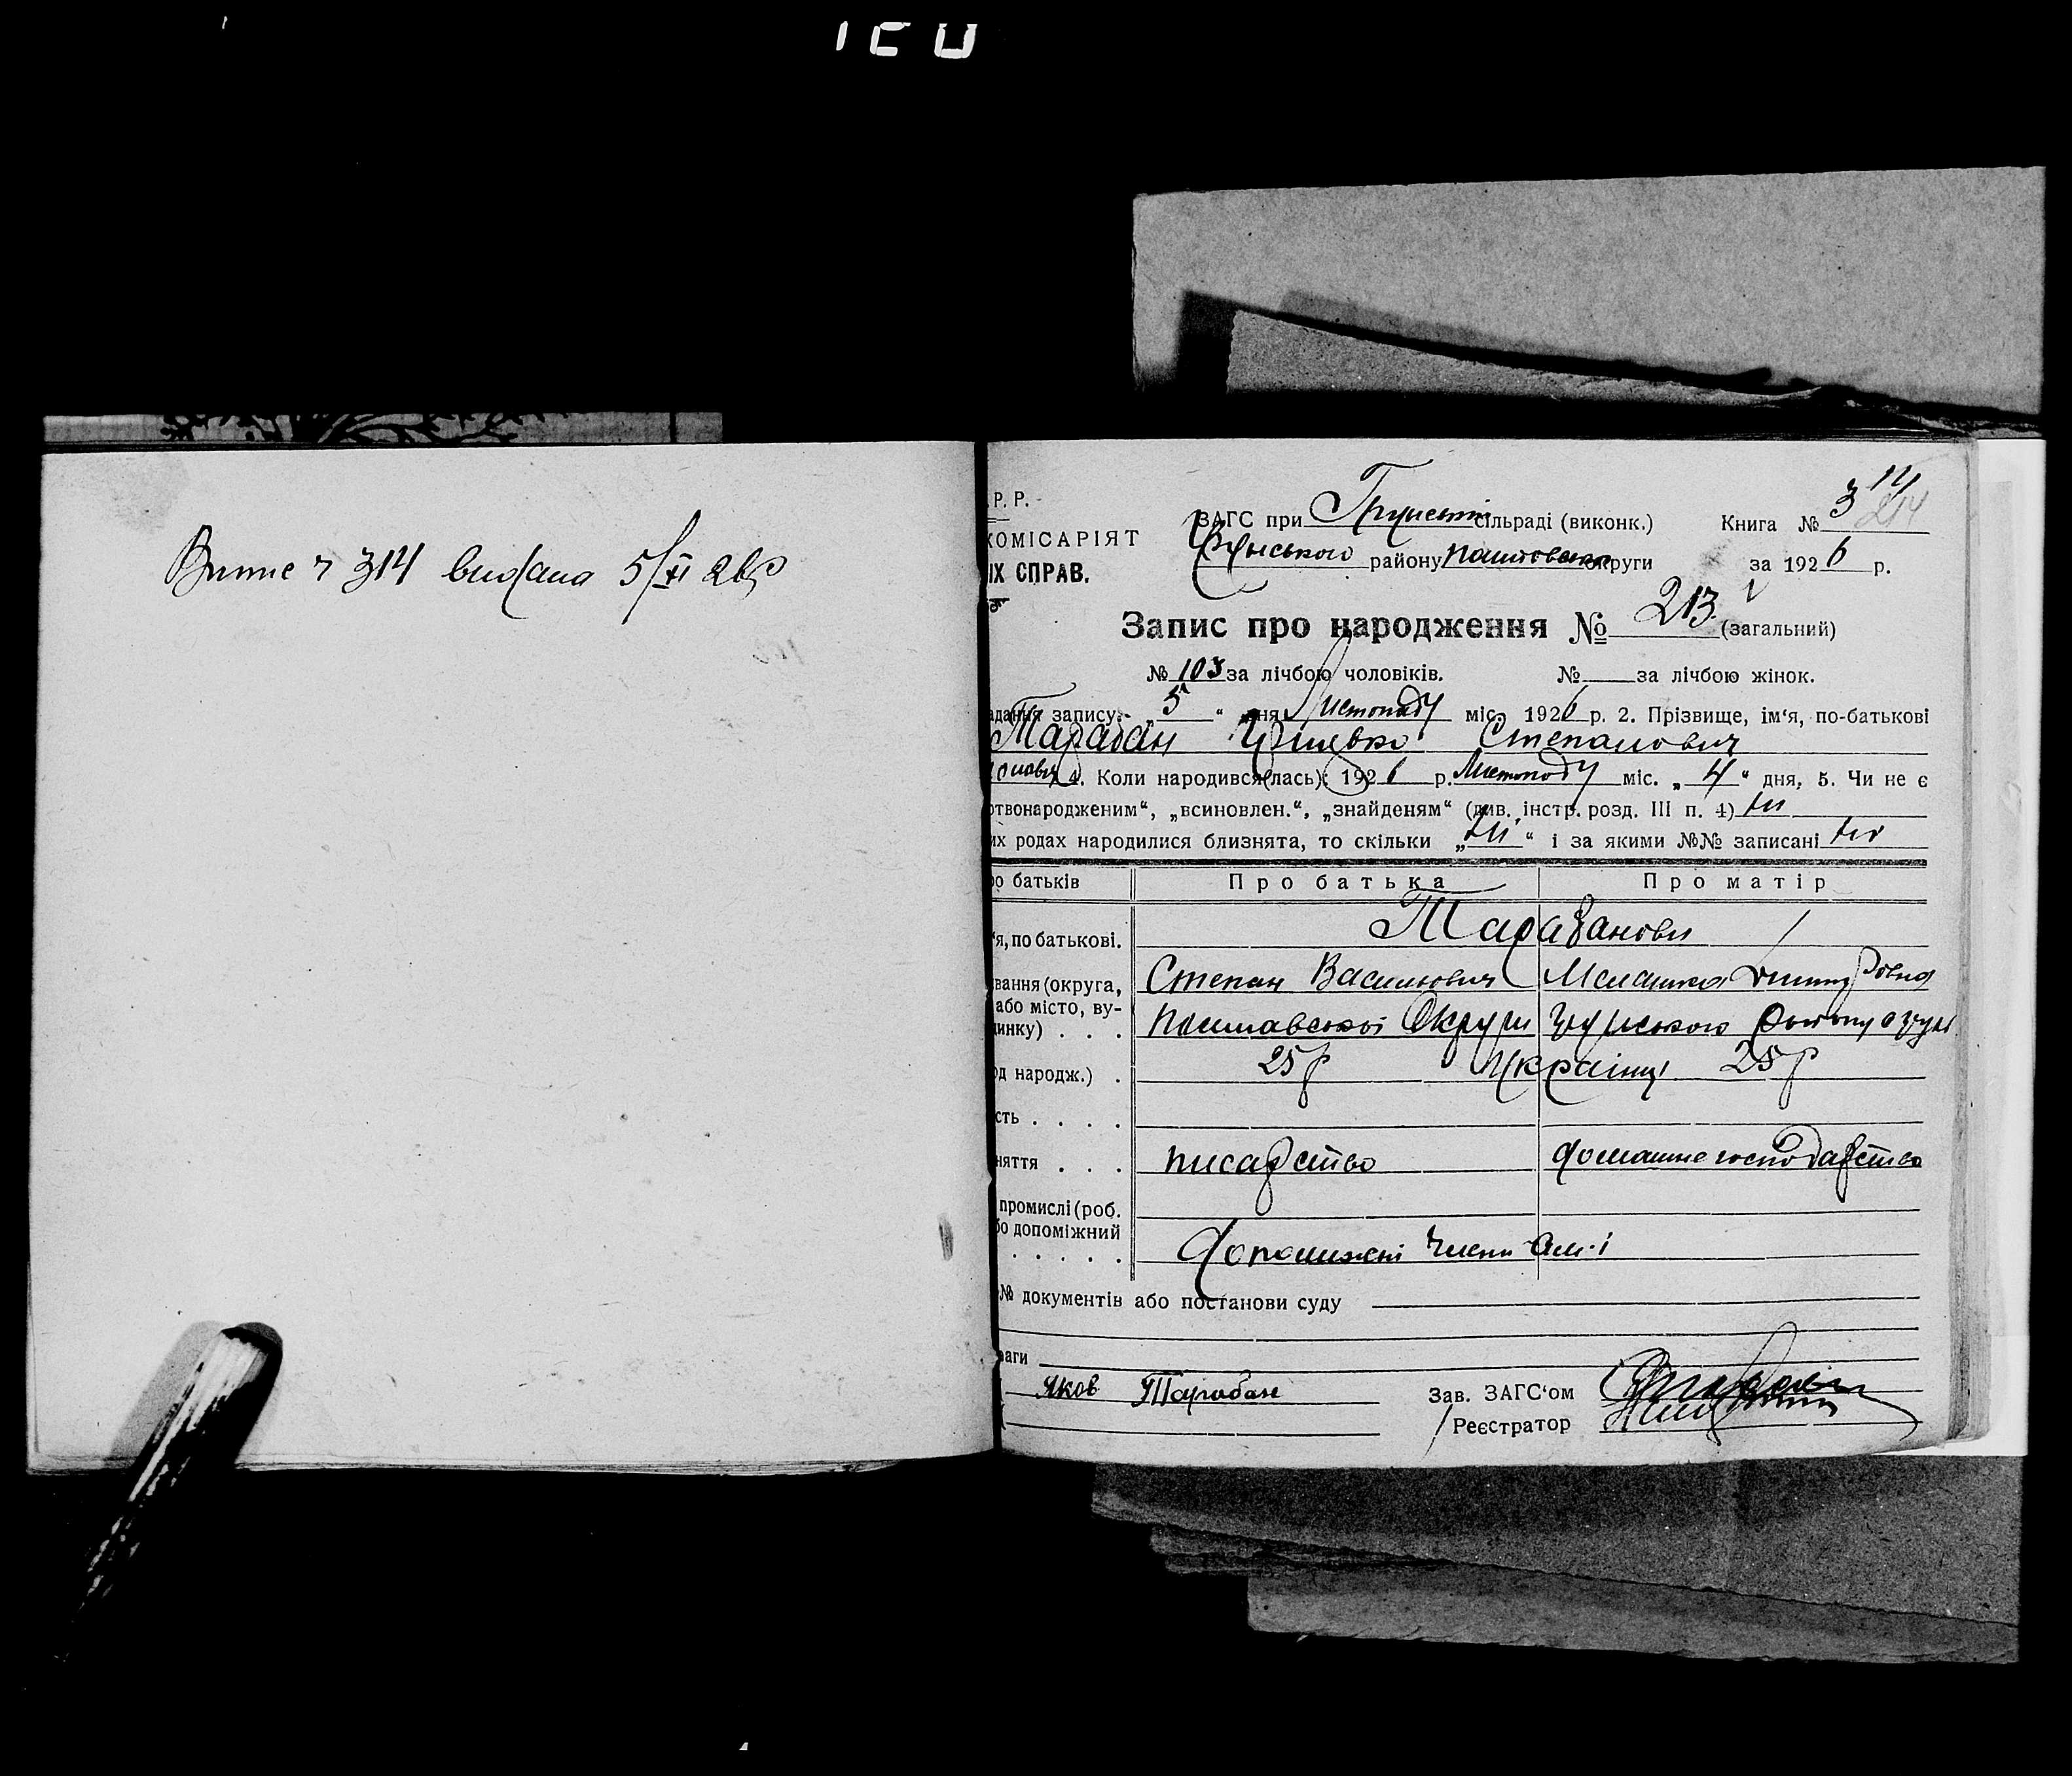 314 видана 5/XI 26р
.Р.Р.
КОМІСАРІЯТ
ІХ СПРАВ.
ЗАГС при сільраді (виконк.)
Книга № 3 14
214
району округи
за 1926 р.
Запис про народження № 213 (загальний)
№ 103 за лічбою чоловіків. № за лічбою жінок.
адання запису: „5“ дня Листопаду міс. 1926 р. 2. Прізвище, ім‘я, по-батькові
Тарабан Степанович
4. Коли народився(лась): 1926 р. Листопаду міс. „4“ дня, 5. Чи не є
ртвонародженим“, „всиновлен.“, „знайденям“ (див. інстр. розд. III п. 4) ні
их родах народилися близнята, то скільки „ні“ і за якими №№ записані ні
ро батьків
Про батька
Про матір
‘я, по батькові.
Тарабанови
вання (округа,
або місто, ву-
динку) . . .
Степан Васильович
Полтавської Округи
од народж.) .
25 р Українці 25 р
сть . . . .
няття . . .
писарство
домашнє господарство
промислі (роб.
бо допоміжний
. . . . .
допоміжні члени сім‘ї
№ документів або постанови суду
ваги
Яков Тарабан
Зав. ЗАГС‘ом
Реєстратор